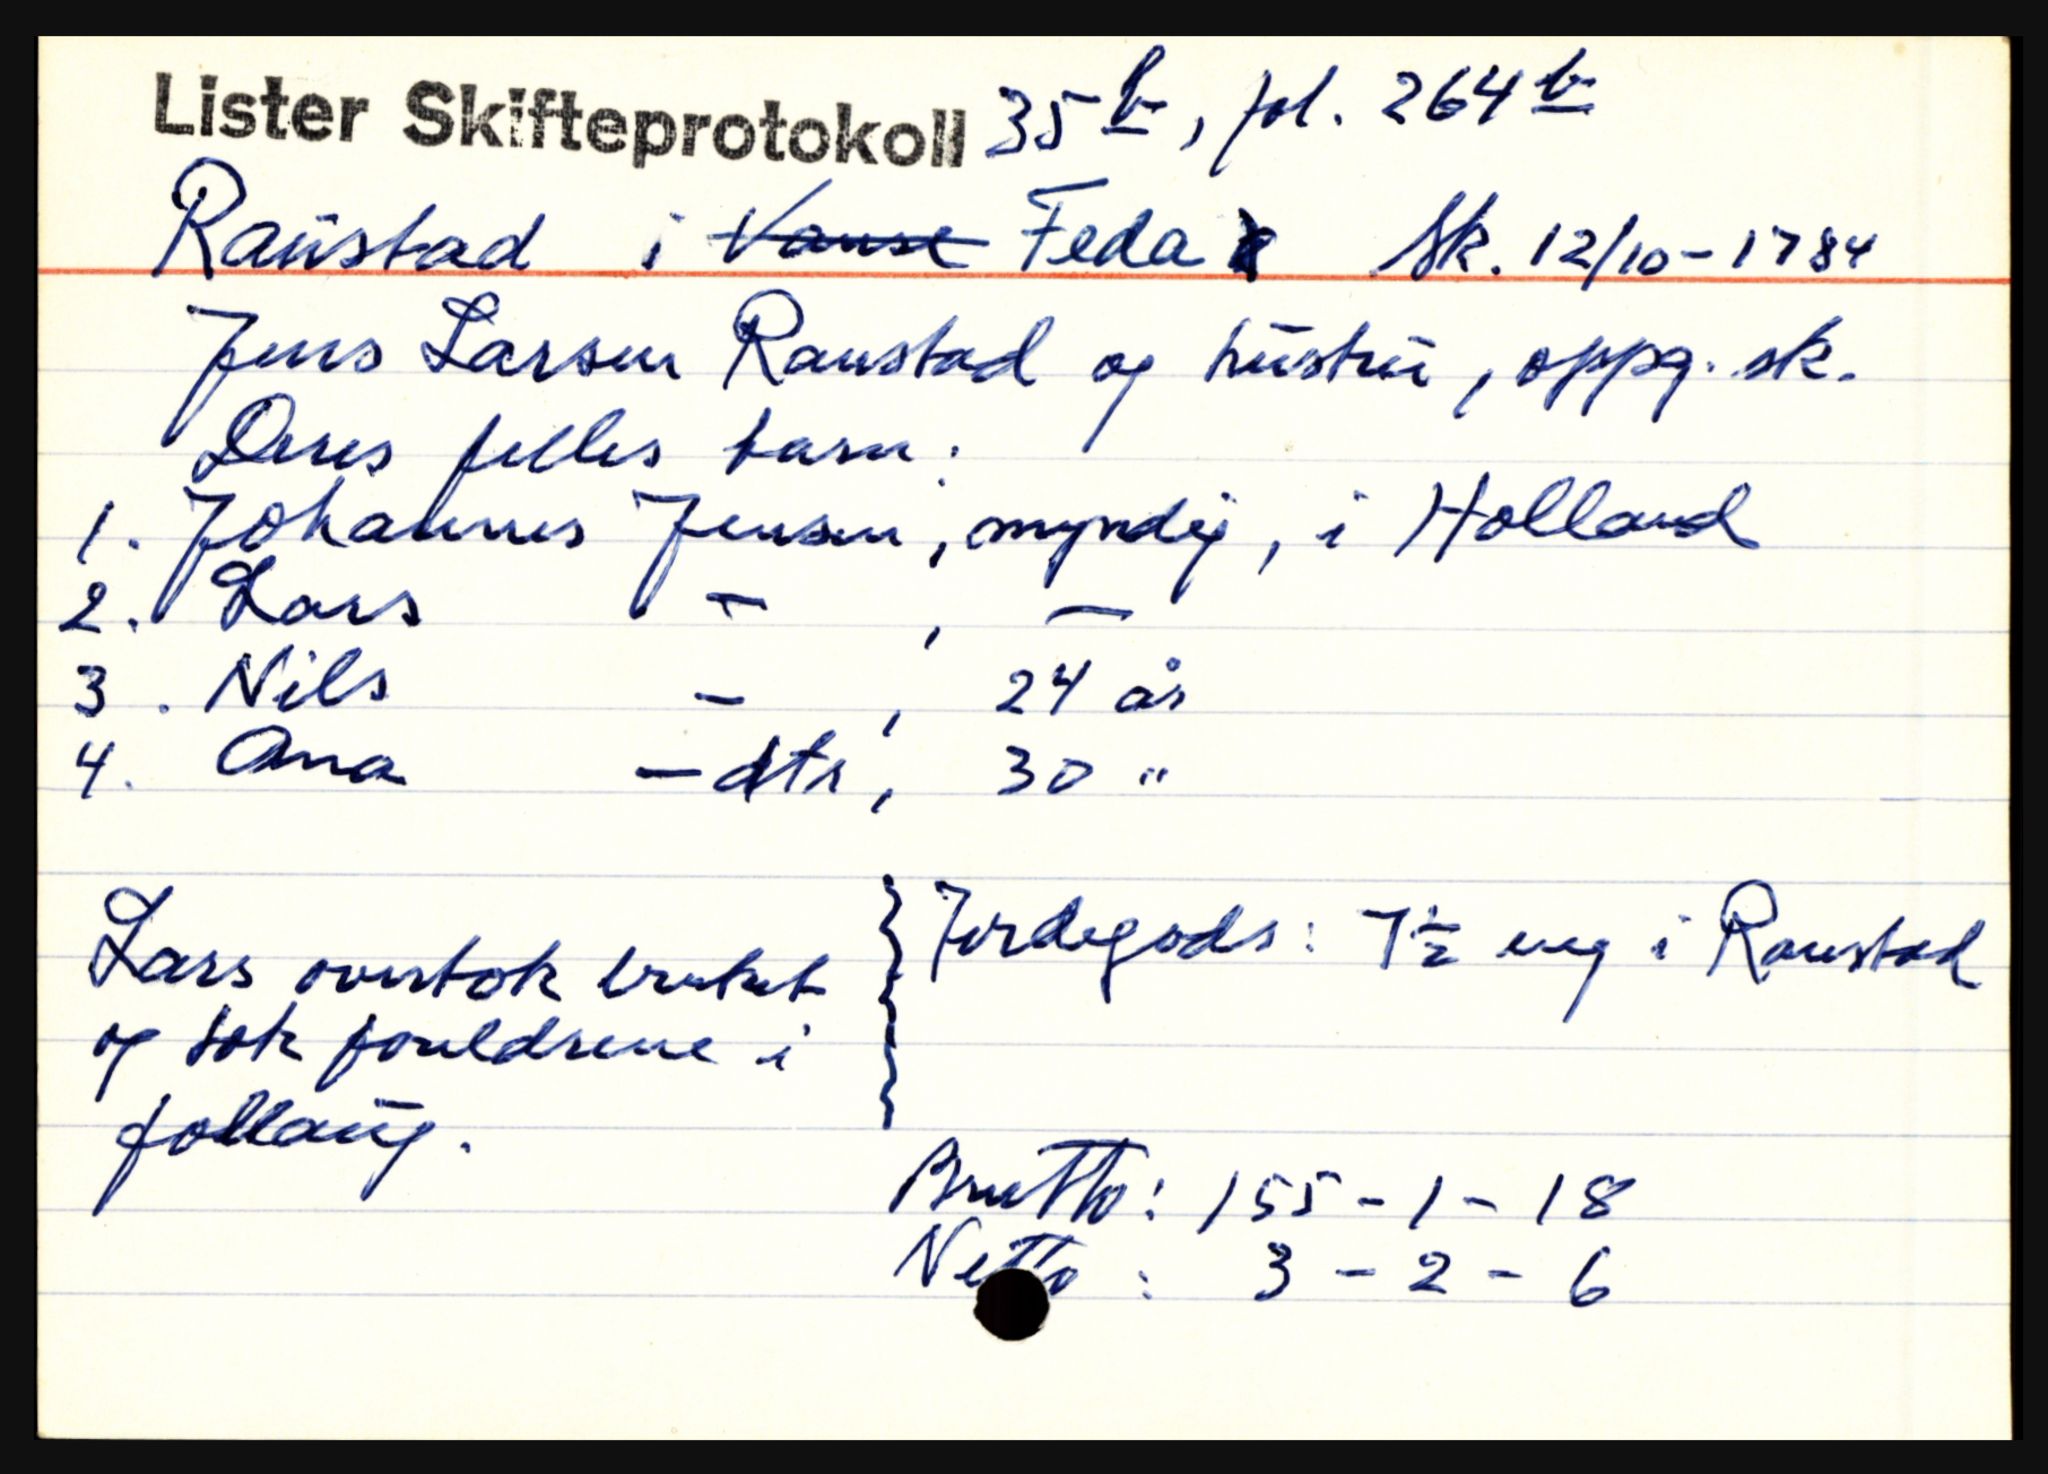 Lister Skifteprotokoll 35 b, fol. 264 b
Raustad i Vanse Feda Sk. 12/10-1784
Jens Larsen Raustad og hustru, oppg. sk.
Deres felles barn:
1. Johannes Jensen, myndig, i Holland
2. Lars — , —
3. Nils — , 24 år
4. Ana — dtr, 30 "
Lars overtok bruket
og tok foreldrene i
follaug.
Jordegods: 7½ eng i Raustad
Brutto: 155 - 1 - 18
Netto: 3 - 2 - 6